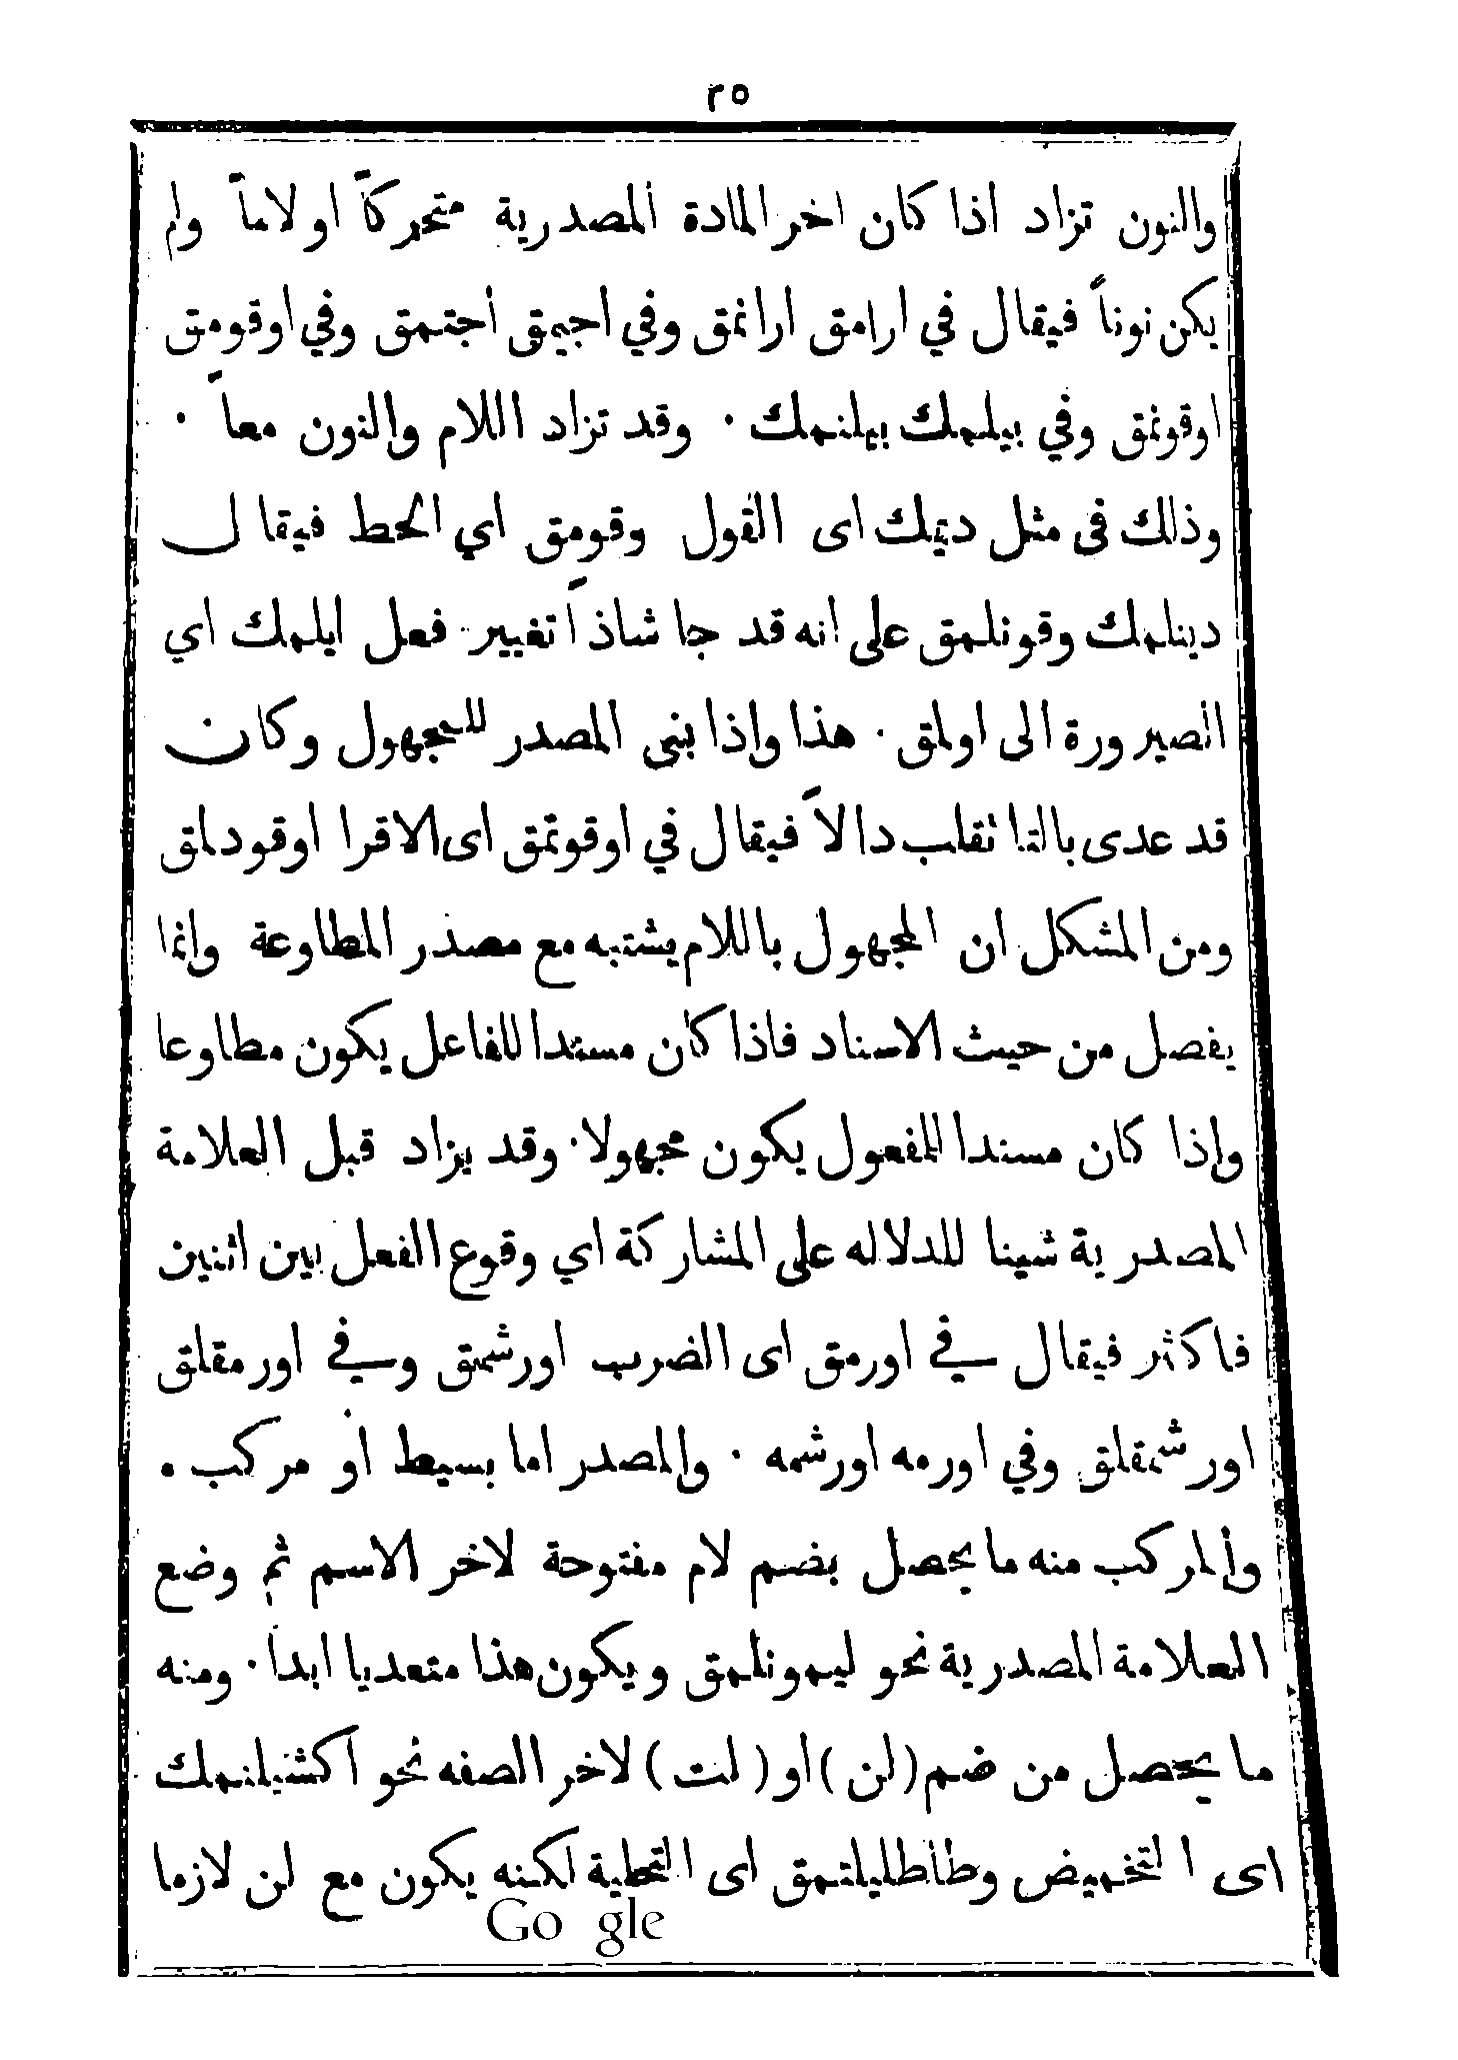 ٢٥
والنون تزاد اذا كان اخر المادة المصدرية متحركاً اولاماً ولم
يكن نوناً فيقال في ارامق ارانمق وفي اجيمق اجتمق وفي اوقومق
اوقونمق وفي بيلمك بيلنمك · وقد تزاد اللام والنون معاً ·
وذلك في مثل ديمك اى القول وقومق اي الحط فيقال
دينلمك وقونلمق على انه قد جا شاذاً تغيير فعل ايلمك اي
الصيرورة الى اولمق · هذا واذا بنى المصدر للمجهول وكان
قد عدى بالتا تقلب دالاً فيقال في اوقوتمق اى الاقرا اوقودلمق
ومن المشكل ان المجهول باللام يشتبه مع مصدر المطاوعة وانما
يفصل من حيث الاسناد فاذا كان مسندا للفاعل يكون مطاوعا
واذا كان مسندا للمفعول يكون مجهولا · وقد يزاد قبل العلامة
المصدرية شينا للدلاله على المشاركة اي وقوع الفعل بين اثنين
فاكثر فيقال في اورمق اى الضرب اورشمق وفي اورمقلق
اورشمقلق وفي اورمه اورشمه · والمصدر اما بسيط او مركب ·
والمركب منه ما يحصل بضم لام مفتوحة لاخر الاسم ثم وضع
العلامة المصدرية نحو ليمونلمق ويكون هذا متعديا ابدا · ومنه
ما يحصل من ضم (لن) او (لت) لاخر الصفه نحو اكشيلنمك
اى التخميض وطاطليلتمق اى التحلية لكنه يكون مع لن لازما
Go gle